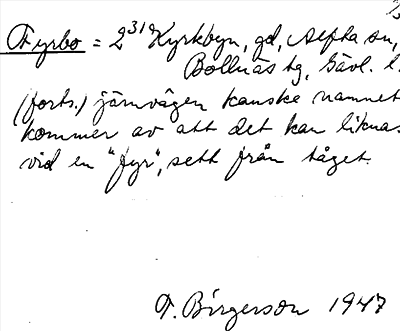 Fyrbo = 2³¹ Kyrkbyn, gd, Alfta sn,
Bollnäs tg, Gävl. l.
(forts.) järnvägen kanske namnet
kommer av att det kan liknas
vid en "fyr", sett från tåget.
F. Birgerson 1947